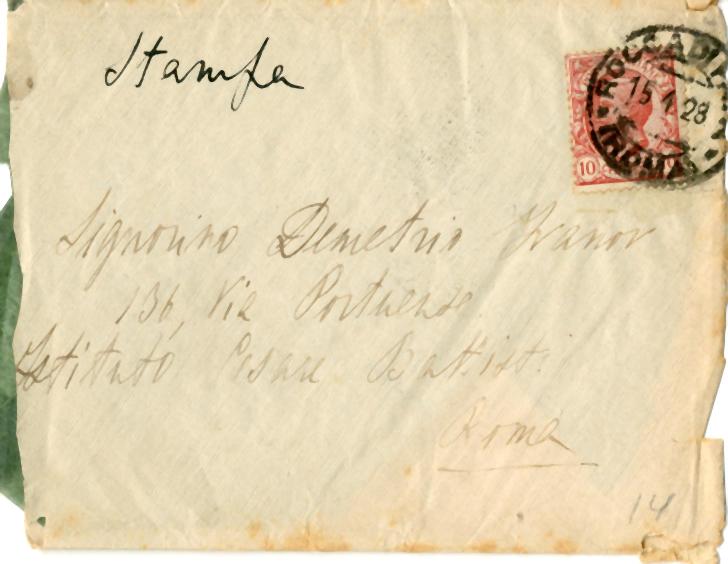 Stampa
ROCCA DI
15 1 28
(ROMA)
10
Signorino Demetrio Ivanov
136, Via Portuense
Istituto Cesare Battisti
Roma
14